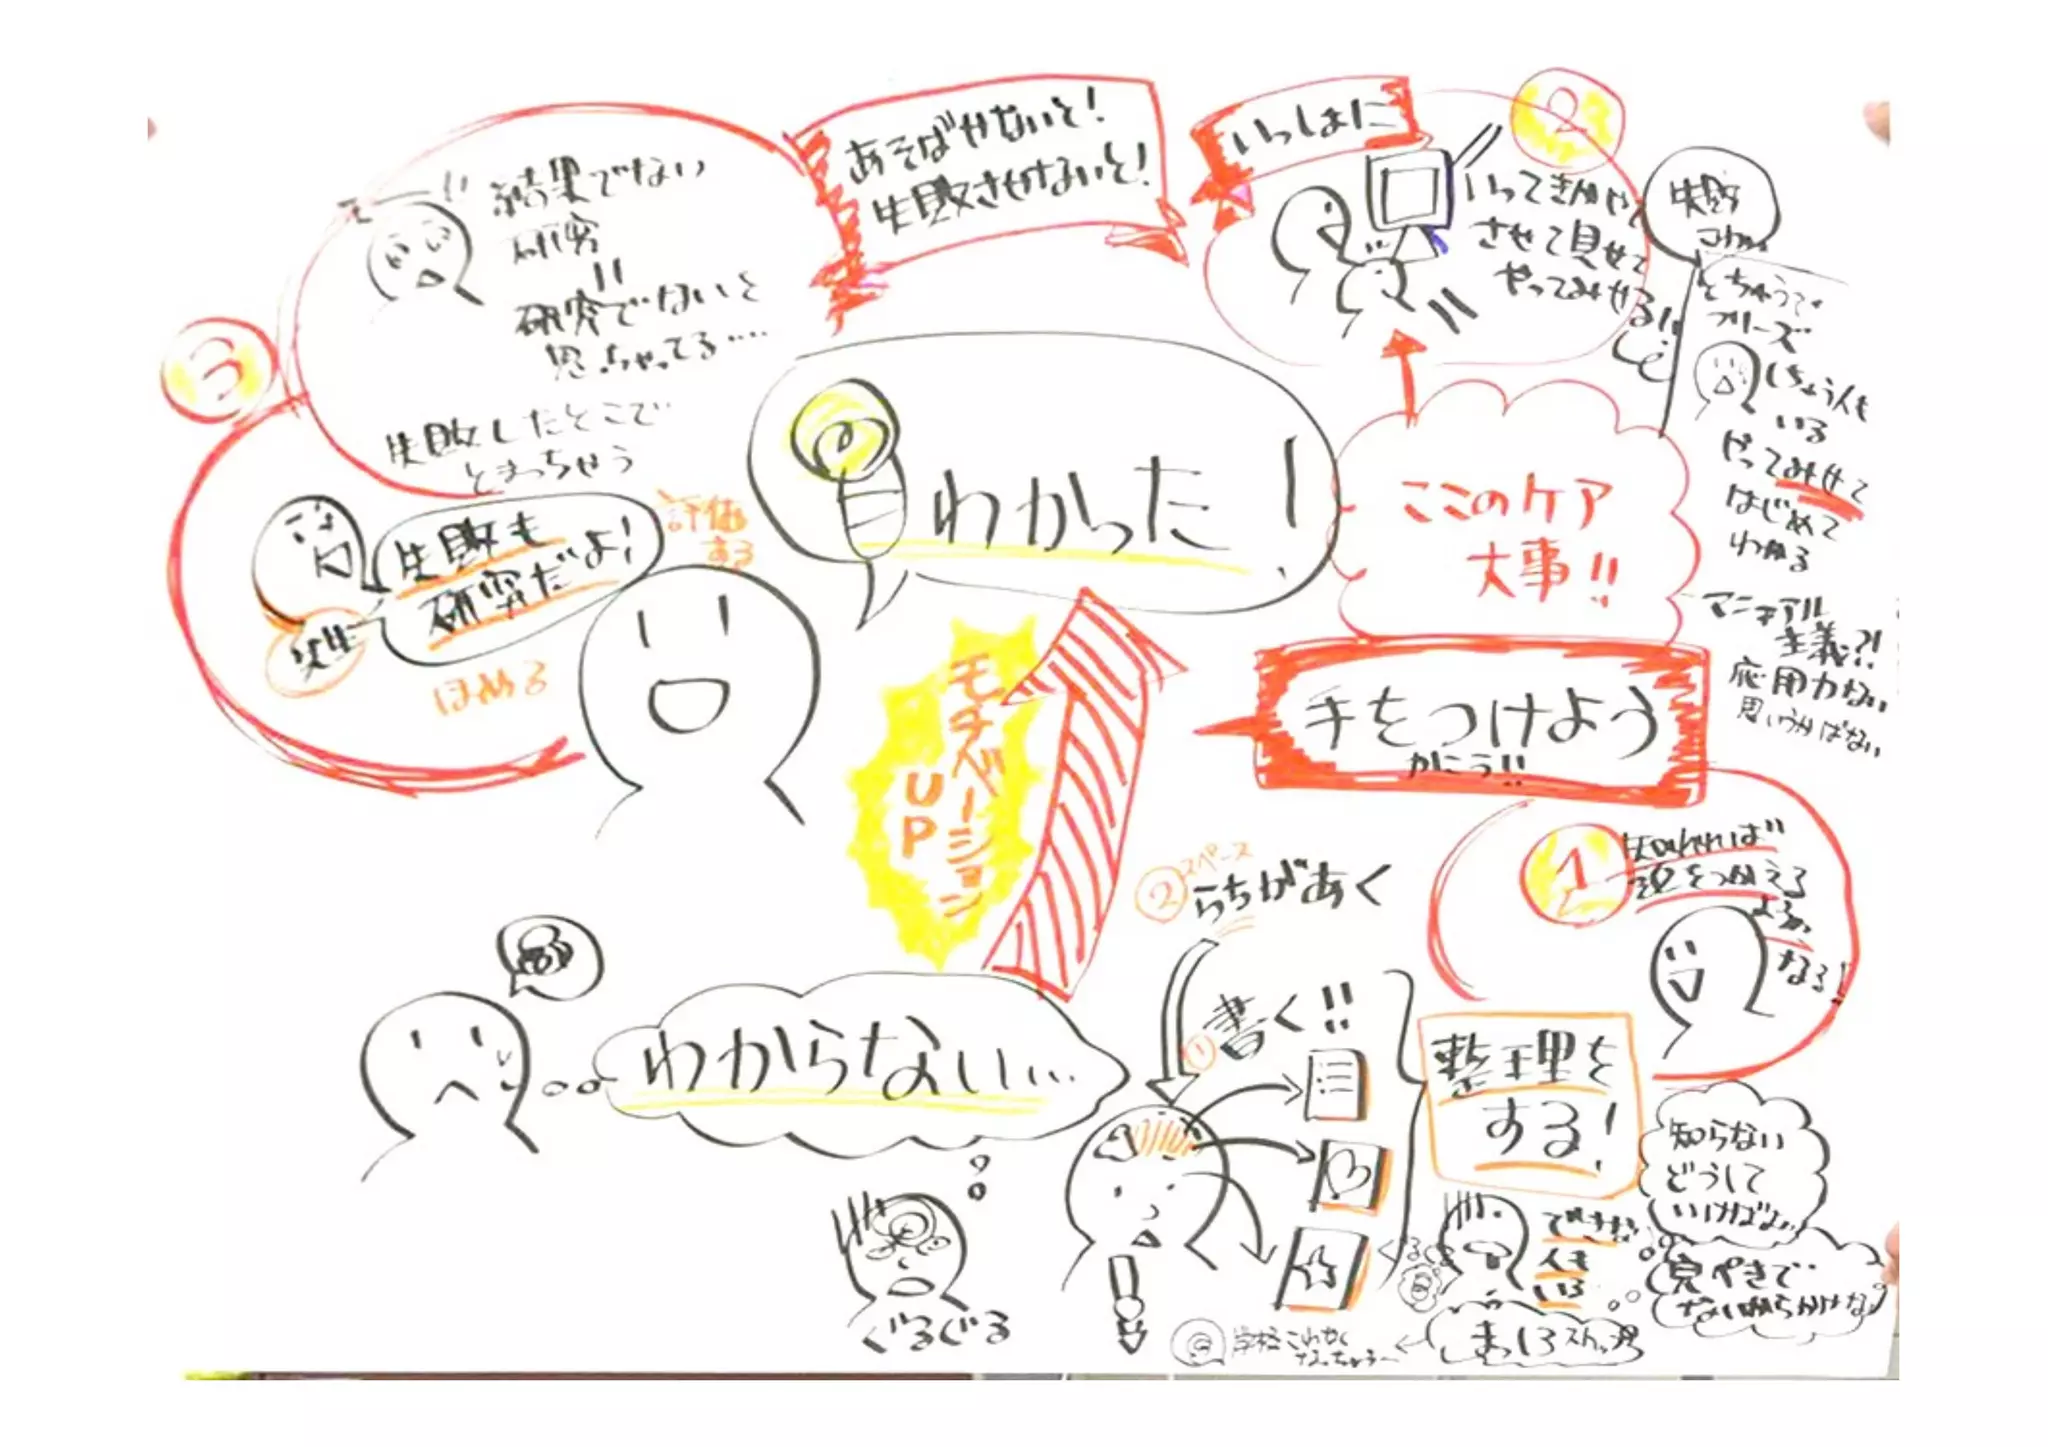 あそばせないと!
失敗させないと!
いっしょに
2
いって
させて見せて
やってみせる!!
失敗
こわい
とちゅうで
フリーズ
しちゃう人も
いる
やってみせて
はじめて
わかる
マニュアル
主義?!
応用力ない
思いうかばない
3
え…!!
結果でない
研究
=
研究でないと
思っちゃってる…
失敗したとこで
とまっちゃう
失敗も
研究だよ!
先生
評価
する
ほめる
わかった!
ここのケア
大事!!
手をつけよう
かこう!!
1
知れれば
頭をつかえる
ように
なる!
モチベーション
UP
② スペース
らちがあく
① 書く!!
整理を
する!
わからない…
ぐるぐる
できない
人も
いる
知らない
どうして
いけば
完ぺきで
ないからかけない
まっしろ
学校こわく
なっちゃう